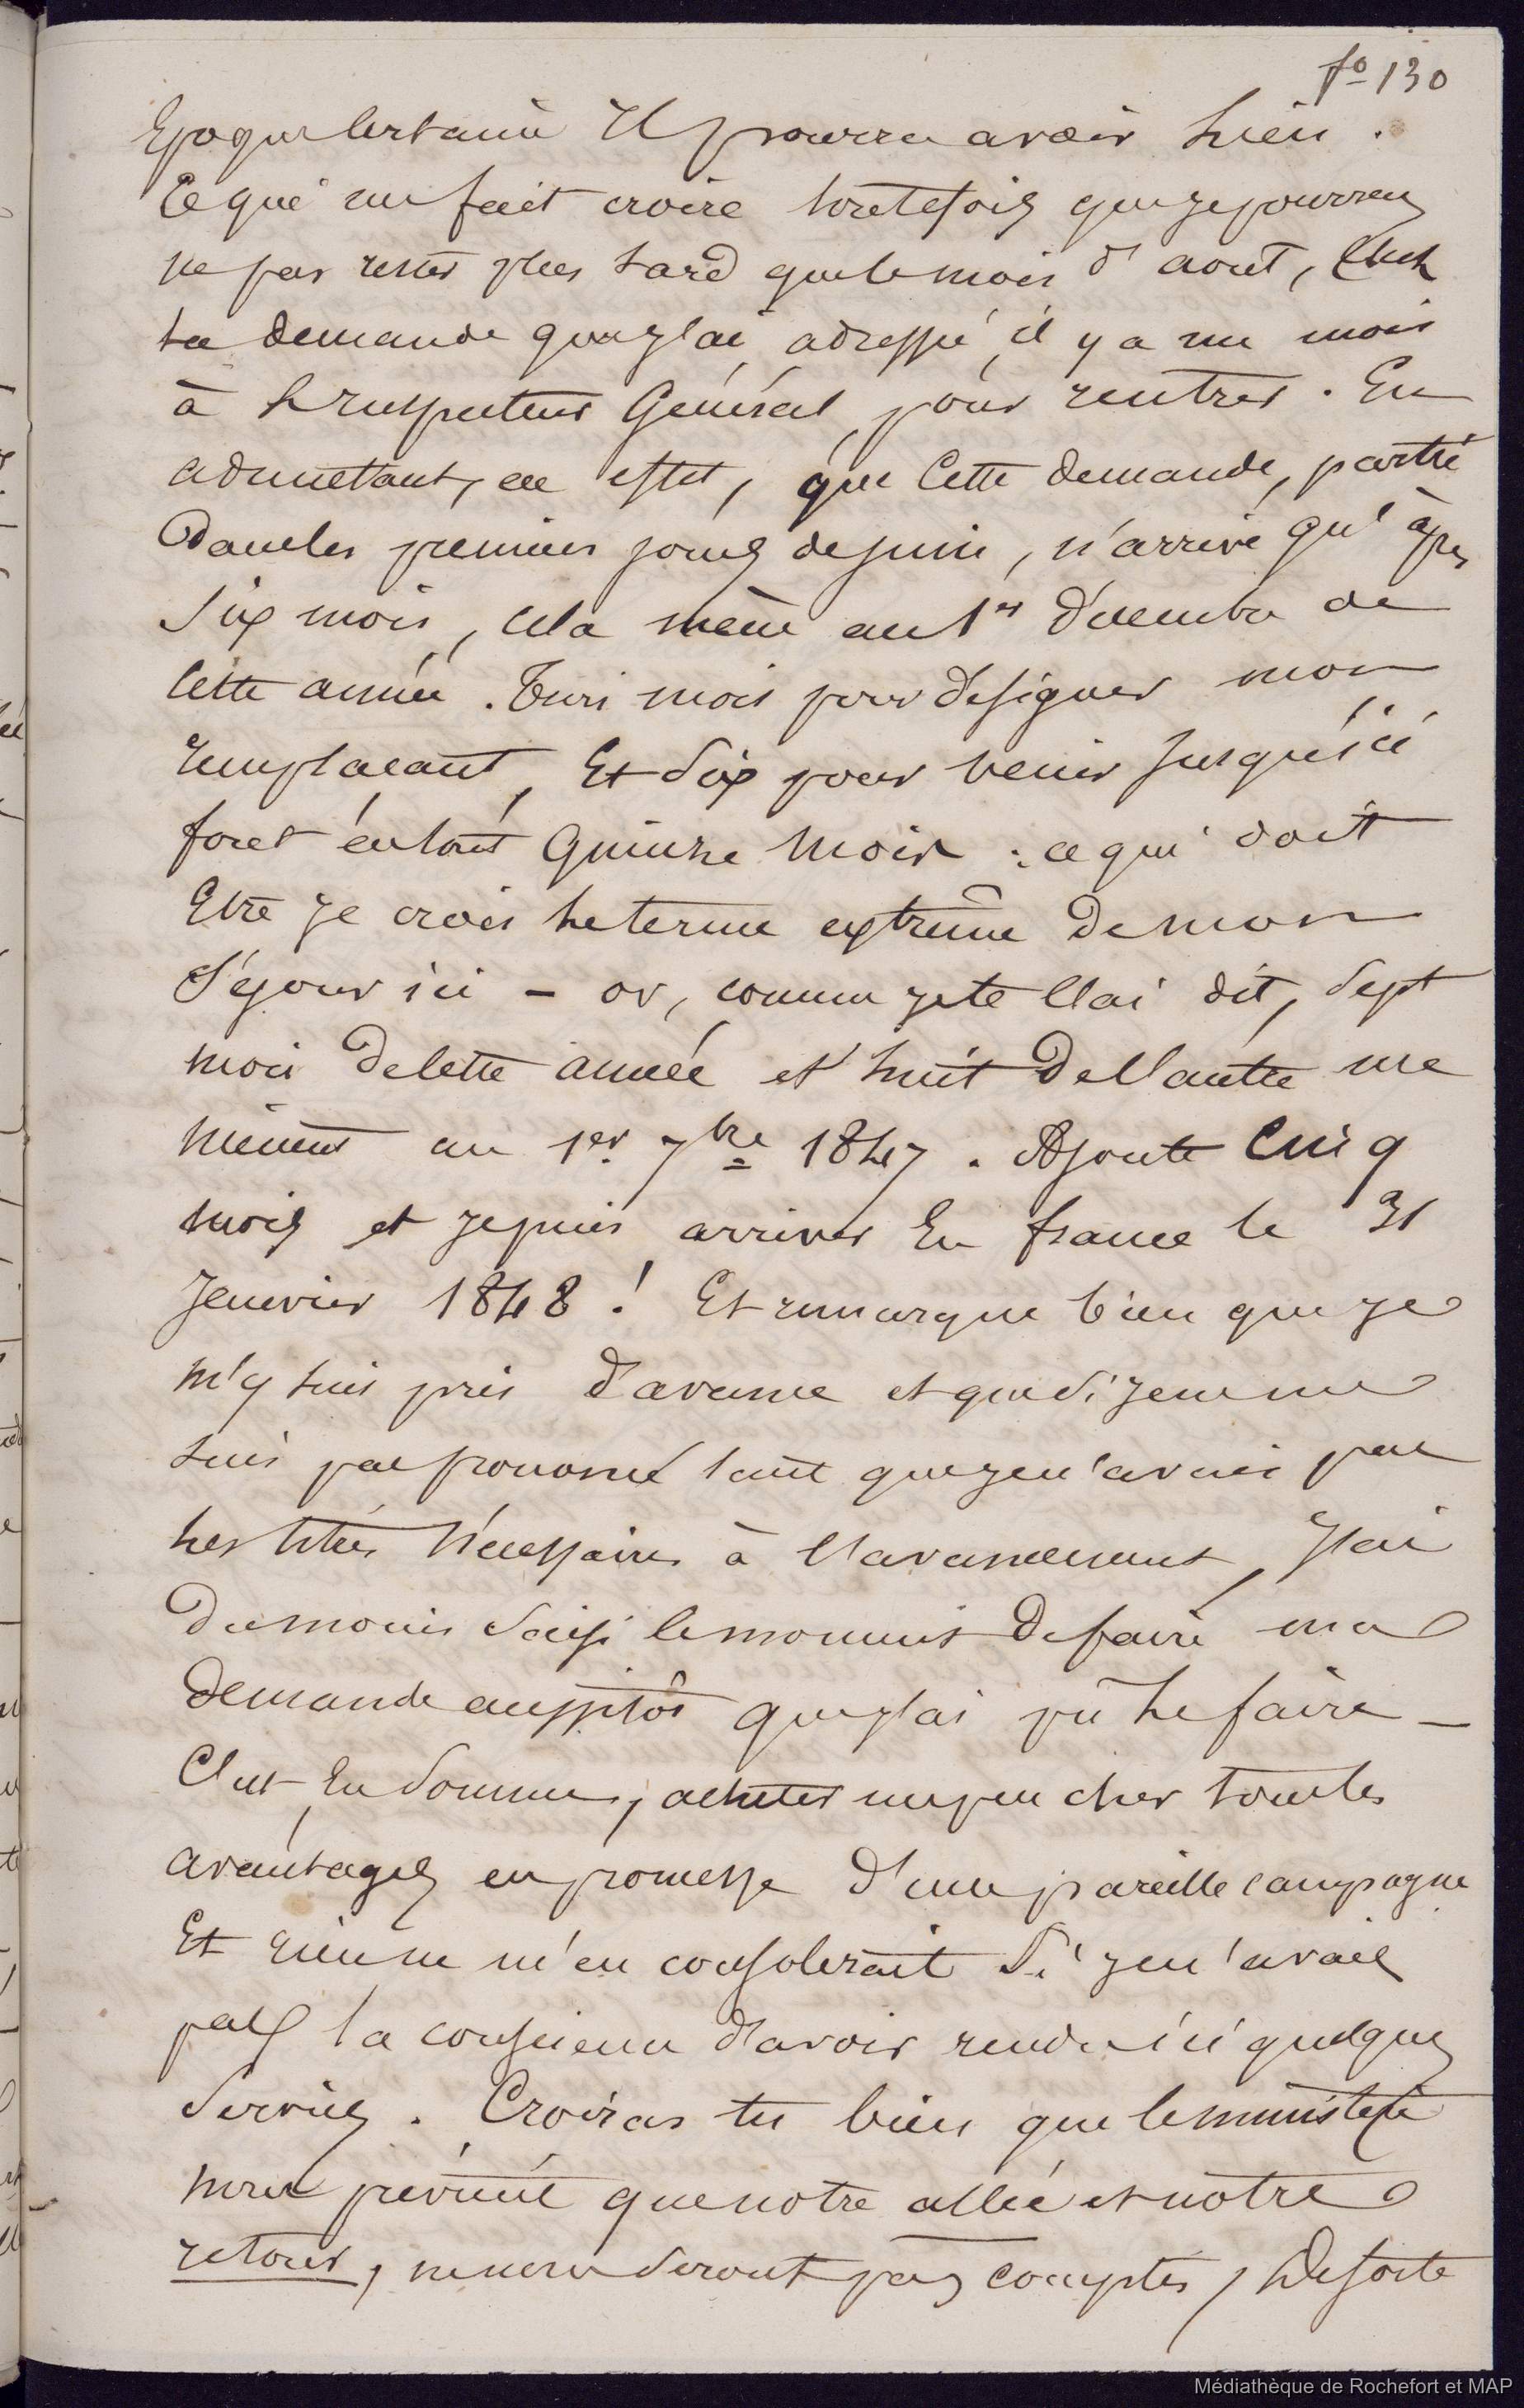 fo 130
Epoque certaine Il pourra avoir lieu.
Ce qui me fait croire toutefois que je pourrai
ne pas rester plus tard que le mois d'aout, c'est
la demande que j'ai adressée il y a un mois
à l'Inspecteur Général pour rentrer. En
admettant, en effet, que cette demande, partie
dans les premiers jours de juin, n'arrive qu'après
six mois, cela mène au 1er décembre de
cette année. Trois mois pour designer mon
remplacant, Et six pour venir jusqu'ici
font en tout quinze mois : ce qui doit
Etre je crois le terme extrême de mon
séjour ici - or, comme je te l'ai dit, sept
mois de cette année et huit de l'autre me
mènent au 1er 7bre 1847. Ajoute cinq
mois et je puis arriver En france le 31
Janvier 1848 ! Et remarque bien que je
m'y suis pris d'avance et que si je ne me
suis pas prononcé tant que je n'avais pas
les titres nécessaires à l'avancement, j'ai
du moins saisi le moment de faire ma
demande aussitôt que j'ai pu le faire -
C'est En somme, acheter un peu cher tous les
avantages en promesse d'une pareille campagne
Et rien ne m'en consolerait si je n'avais
pas la conscience d'avoir rendu ici quelques
services. Croiras tu bien que le ministère
nous prévient que notre allée et notre
retour, ne nous seront pas comptés, De sorte
Médiathèque de Rochefort et MAP